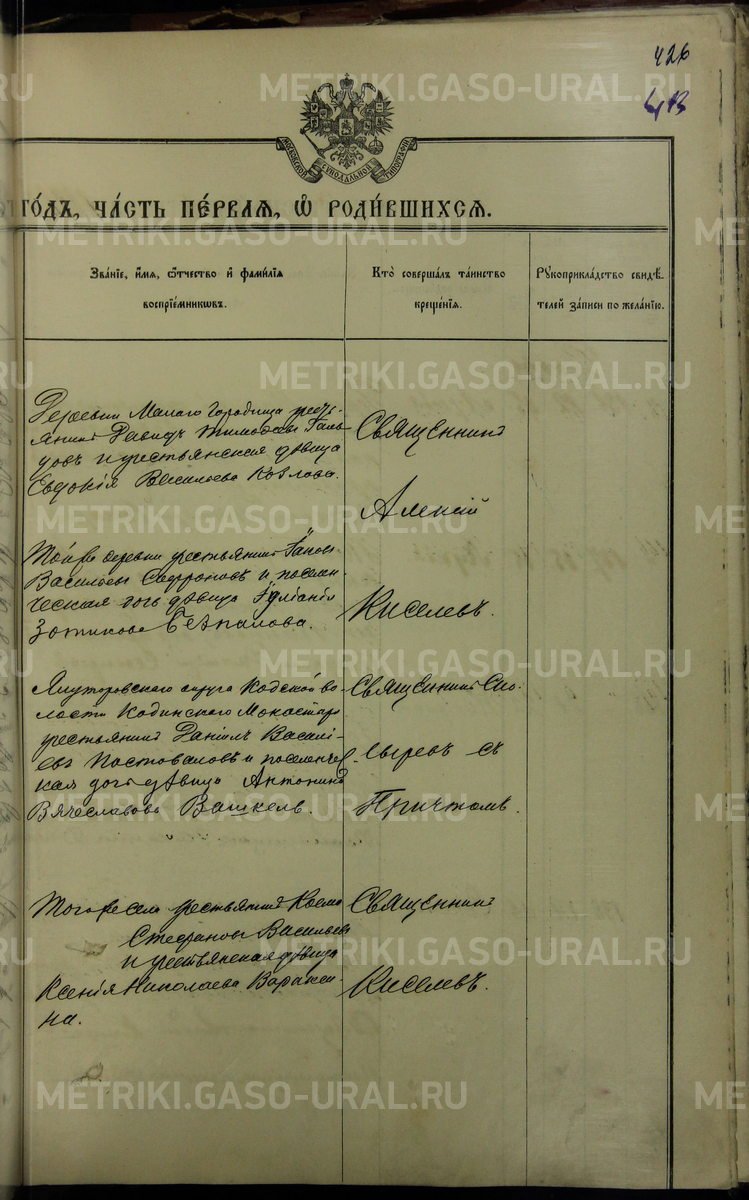 426
МОСКОВСКОЙ СѴНОДАЛЬНОЙ ТИПОГРАФІИ
ГО́ДЪ, ЧА́СТЬ ПЕ́РВАѦ, Ѡ҆ РОДИ́ВШИХСѦ.
Зва́нїе, и҆́мѧ, ѻ҆́тчество и҆ фами́лїѧ
воспрїе́мникѡвъ.
Кто̀ соверша́лъ та́инство
креще́нїѧ.
Рꙋкоприкла́дство свидѣ́-
телей за́писи по жела́нїю.
Деревни Малаго Городища кресть-
янинъ Давидъ Тимоѳеевъ
и крестьянская дѣвица
Евдокія Васильева Козлова.
Священникъ
Алексій
Киселевъ.
Той же деревни крестьянинъ
Васильевъ Сафроновъ и поселен-
ческая дочь дѣвица Іуліанія
Зотикова Безпалова.
Ялуторовскаго округа Кодской во-
лости Кодинскаго Монастыря
крестьянинъ Даніилъ Василь-
евъ Постоваловъ и поселенчес-
кая дочь дѣвица Антонина
Вячеславова Вашкель.
Священникъ Сло-
сыревъ съ
Причтомъ.
Того же села крестьянинъ Косма
Стефановъ Васильевъ
и крестьянская дѣвица
Ксенія НиколаеваВаракси-
на.
Священникъ
Киселевъ.
METRIKI.GASO-URAL.RU